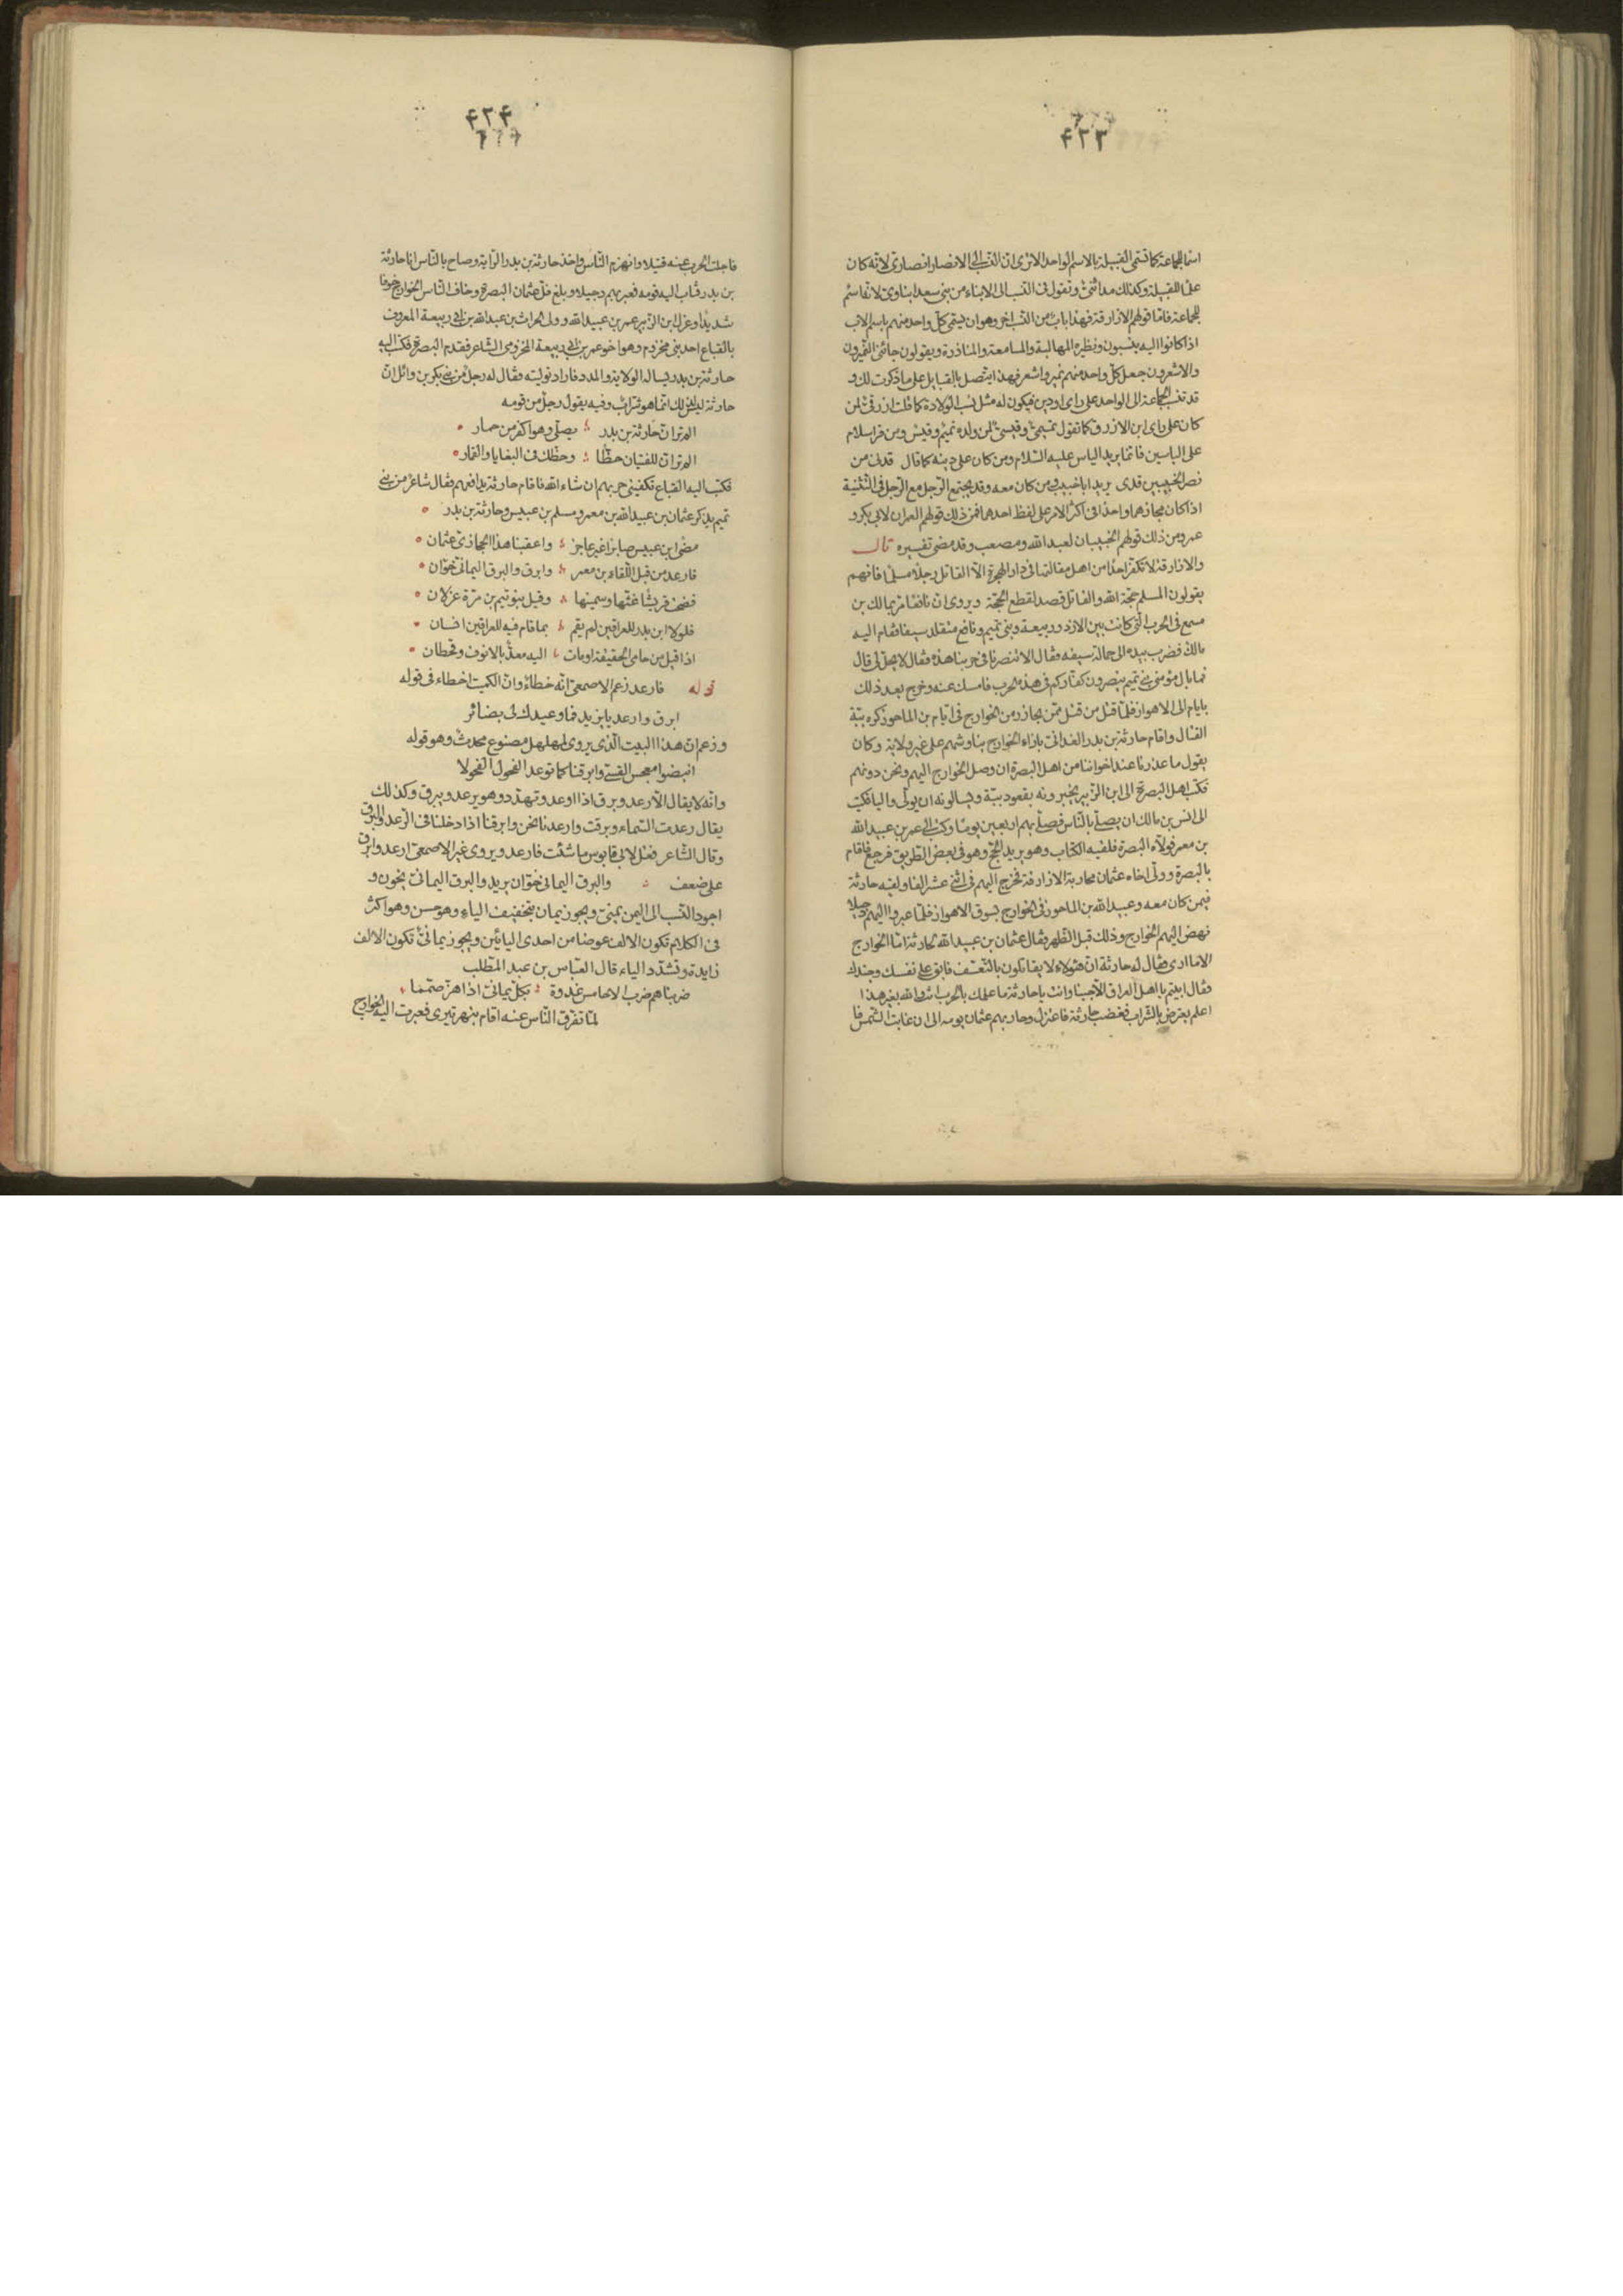 ۴۳۳
اسما للجماعة كما تسمى القبيلة بالاسم الواحد الا ترى ان النسب الى الانصار انصارى لانه كان
علما للقبيلة وكذلك مدائنى وتقول فى النسب الى الابناء من بنى سعد ابناوى لانه اسم
للجماعة فاما قولهم الازارقة فهذا باب من النسب اخر وهو ان يسمى كل واحد منهم باسم الاب
اذا كانوا اليه ينسبون ونظيره المهالبة والمسامعة والمناذرة ويقولون جائنى النميرون
والاشعرون جعل كل واحد منهم نمير واشعر فهذا يتصل بالقبايل على ما ذكرت لك و
قد تنسب الجماعة الى الواحد على راى او دين فيكون له مثل نسب الولادة كما قلت ازرقى لمن
كان على راى ابن الازرق كما تقول تميمى وقيسى لمن ولده تميم وقيس ومن قرا سلام
على الياسين فانما يريد الياس عليه السلام ومن كان على دينه كما قال قدنى من
نصر الخبيبين قدى يريد ابا خبيب ومن كان معه وقد يجتمع الرجل مع الرجل فى التثنية
اذا كان مجازهما واحدا فى اكثر الامر على لفظ احدهما فمن ذلك قولهم العمران لابى بكر و
عمر ومن ذلك قولهم الخبيبان لعبد الله ومصعب وقد مضى تفسيره قال
والازارقة لا تكفر احدا من اهل مقالتها فى دار الهجرة الا القاتل رجلا مسلما فانهم
يقولون المسلم حجة الله والقاتل قصد لقطع الحجة ويروى ان نافعا مر بمالك بن
مسمع فى الحرب التى كانت بين الازد وربيعة وبنى تميم ونافع متقلد سيفا فقام اليه
مالك فضرب بيده الى حمالة سيفه وقال الا تنصرنا فى حربنا هذه فقال لا يحل لى قال
فما بال مؤمنى بنى تميم ينصرون كفاركم فى هذه الحرب فامسك عنه وخرج بعد ذلك
بايام الى الاهواز فلما قتل من قتل ممن يجازر من الخوارج فى ايام بن الماحوز كره ببّة
القتال واقام حارثة بن بدر الغدانى بازاء الخوارج يناوشهم على غير ولاية وكان
يقول ما عذرنا عند اخواننا من اهل البصرة ان وصل الخوارج اليهم ونحن دونهم
فكتب اهل البصرة الى ابن الزبير يخبرونه بقعود ببّة ويسالونه ان يولى واليا فكتب
الى انس بن مالك ان يصلى بالناس فصلى بهم اربعين يوما وكتب الى عمر بن عبيد الله
بن معمر فولاه البصرة فلقيه الكتاب وهو يريد الحج وهو فى بعض الطريق فرجع فاقام
بالبصرة وولى اخاه عثمان محاربة الازارقة فخرج اليهم فى اثنى عشر الفا ولقيه حارثة
فيمن كان معه وعبيد الله بن الماحوز فى الخوارج بسوق الاهواز فلما عبروا اليهم دجيلا
نهض اليهم الخوارج وذلك قبل الظهر فقال عثمان بن عبيد الله لحارثة اما الخوارج
الا ما ارى فقال له حارثة ان هؤلاء لا يقاتلون بالتعسف فابق على نفسك وجندك
فقال ابيتم يا اهل العراق الا جبنا وانت يا حارثة ما علمك بالحرب انت والله بغير هذا
اعلم يعرض بالشراب فغضب حارثة فاعتزل وحاربهم عثمان يومه الى ان غابت الشمس فا
۴۳۴
فاجلت الحرب عنه قتيلا وانهزم الناس واخذ حارثة بن بدر الراية وصاح بالناس انا حارثة
بن بدر فثاب اليه قومه فعبر بهم دجيلا وبلغ فل عثمان البصرة وخاف الناس الخوارج خوفا
شديدا وعزل ابن الزبير عمر بن عبيد الله وولى الحراث بن عبد الله بن ابى ربيعة المعروف
بالقباع احد بنى مخزوم وهو اخو عمر بن ابى ربيعة المخزومى الشاعر فقدم البصرة فكتب اليه
حارثة بن بدر يساله الولاية والمدد فاراد توليته فقال له رجل من بنى بكر بن وائل ان
حارثة ليس لذلك انما هو شراب وفيه يقول رجل من قومه
الم تر ان حارثة بن بدر يصلى وهو اكفر من حمار
الم تر ان للفتيان حظا وحظك فى البغايا والقمار
فكتب اليه القباع تكفينى حربهم ان شاء الله فاقام حارثة يدافعهم فقال شاعر من بنى
تميم يذكر عثمان بن عبيد الله بن معمر ومسلم بن عبيس وحارثة بن بدر
مضى ابن عبيس صابرا غير عاجز واعقبنا هذا الحجازى عثمان
فارعد من قبل اللقاء بن معمر وابرق والبرق اليمانى خوان
فضحت قريشا غثها وسمينها وقيل بنو تيم بن مرة عزلان
فلولا ابن بدر للعراقين لم يقم بما قام فيه للعراقين انسان
اذا قيل من حامى الحقيقة اومات اليه معد بالانوف وقحطان
قوله فارعد زعم الاصمعى انه خطاء وان الكميت اخطاء فى قوله
ابرق وارعد يا يزيد فما وعيدك لى بضائر
وزعم ان هذا البيت الذى يروى لمهلهل مصنوع محدث وهو قوله
انبضوا معجس القسى وابرقنا كما توعد الفحول الفحولا
وانه لا يقال الا رعد وبرق اذا اوعد وتهدد وهو يرعد ويبرق وكذلك
يقال رعدت السماء وبرقت وارعدنا نحن وابرقنا اذا دخلنا فى الرعد والبرق
وقال الشاعر فقل لابى قابوس ما شئت فارعد ويروى غير الاصمعى ارعد وابرق
على ضعف والبرق اليمانى خوان يريد والبرق اليمانى يخون و
اجود النسب الى اليمن يمنى ويجوز يمان بتخفيف الياء وهو حسن وهو اكثر
فى الكلام تكون الالف عوضا من احدى اليائين ويجوز يمانى تكون الالف
زايدة وتشدد الياء قال العباس بن عبد المطلب
ضربناهم ضرب الاحامس غدوة بكل يمانى اذا هز صمما
لما تفرق الناس عنه اقام بنهر تيرى فعبرت اليه الخوارج